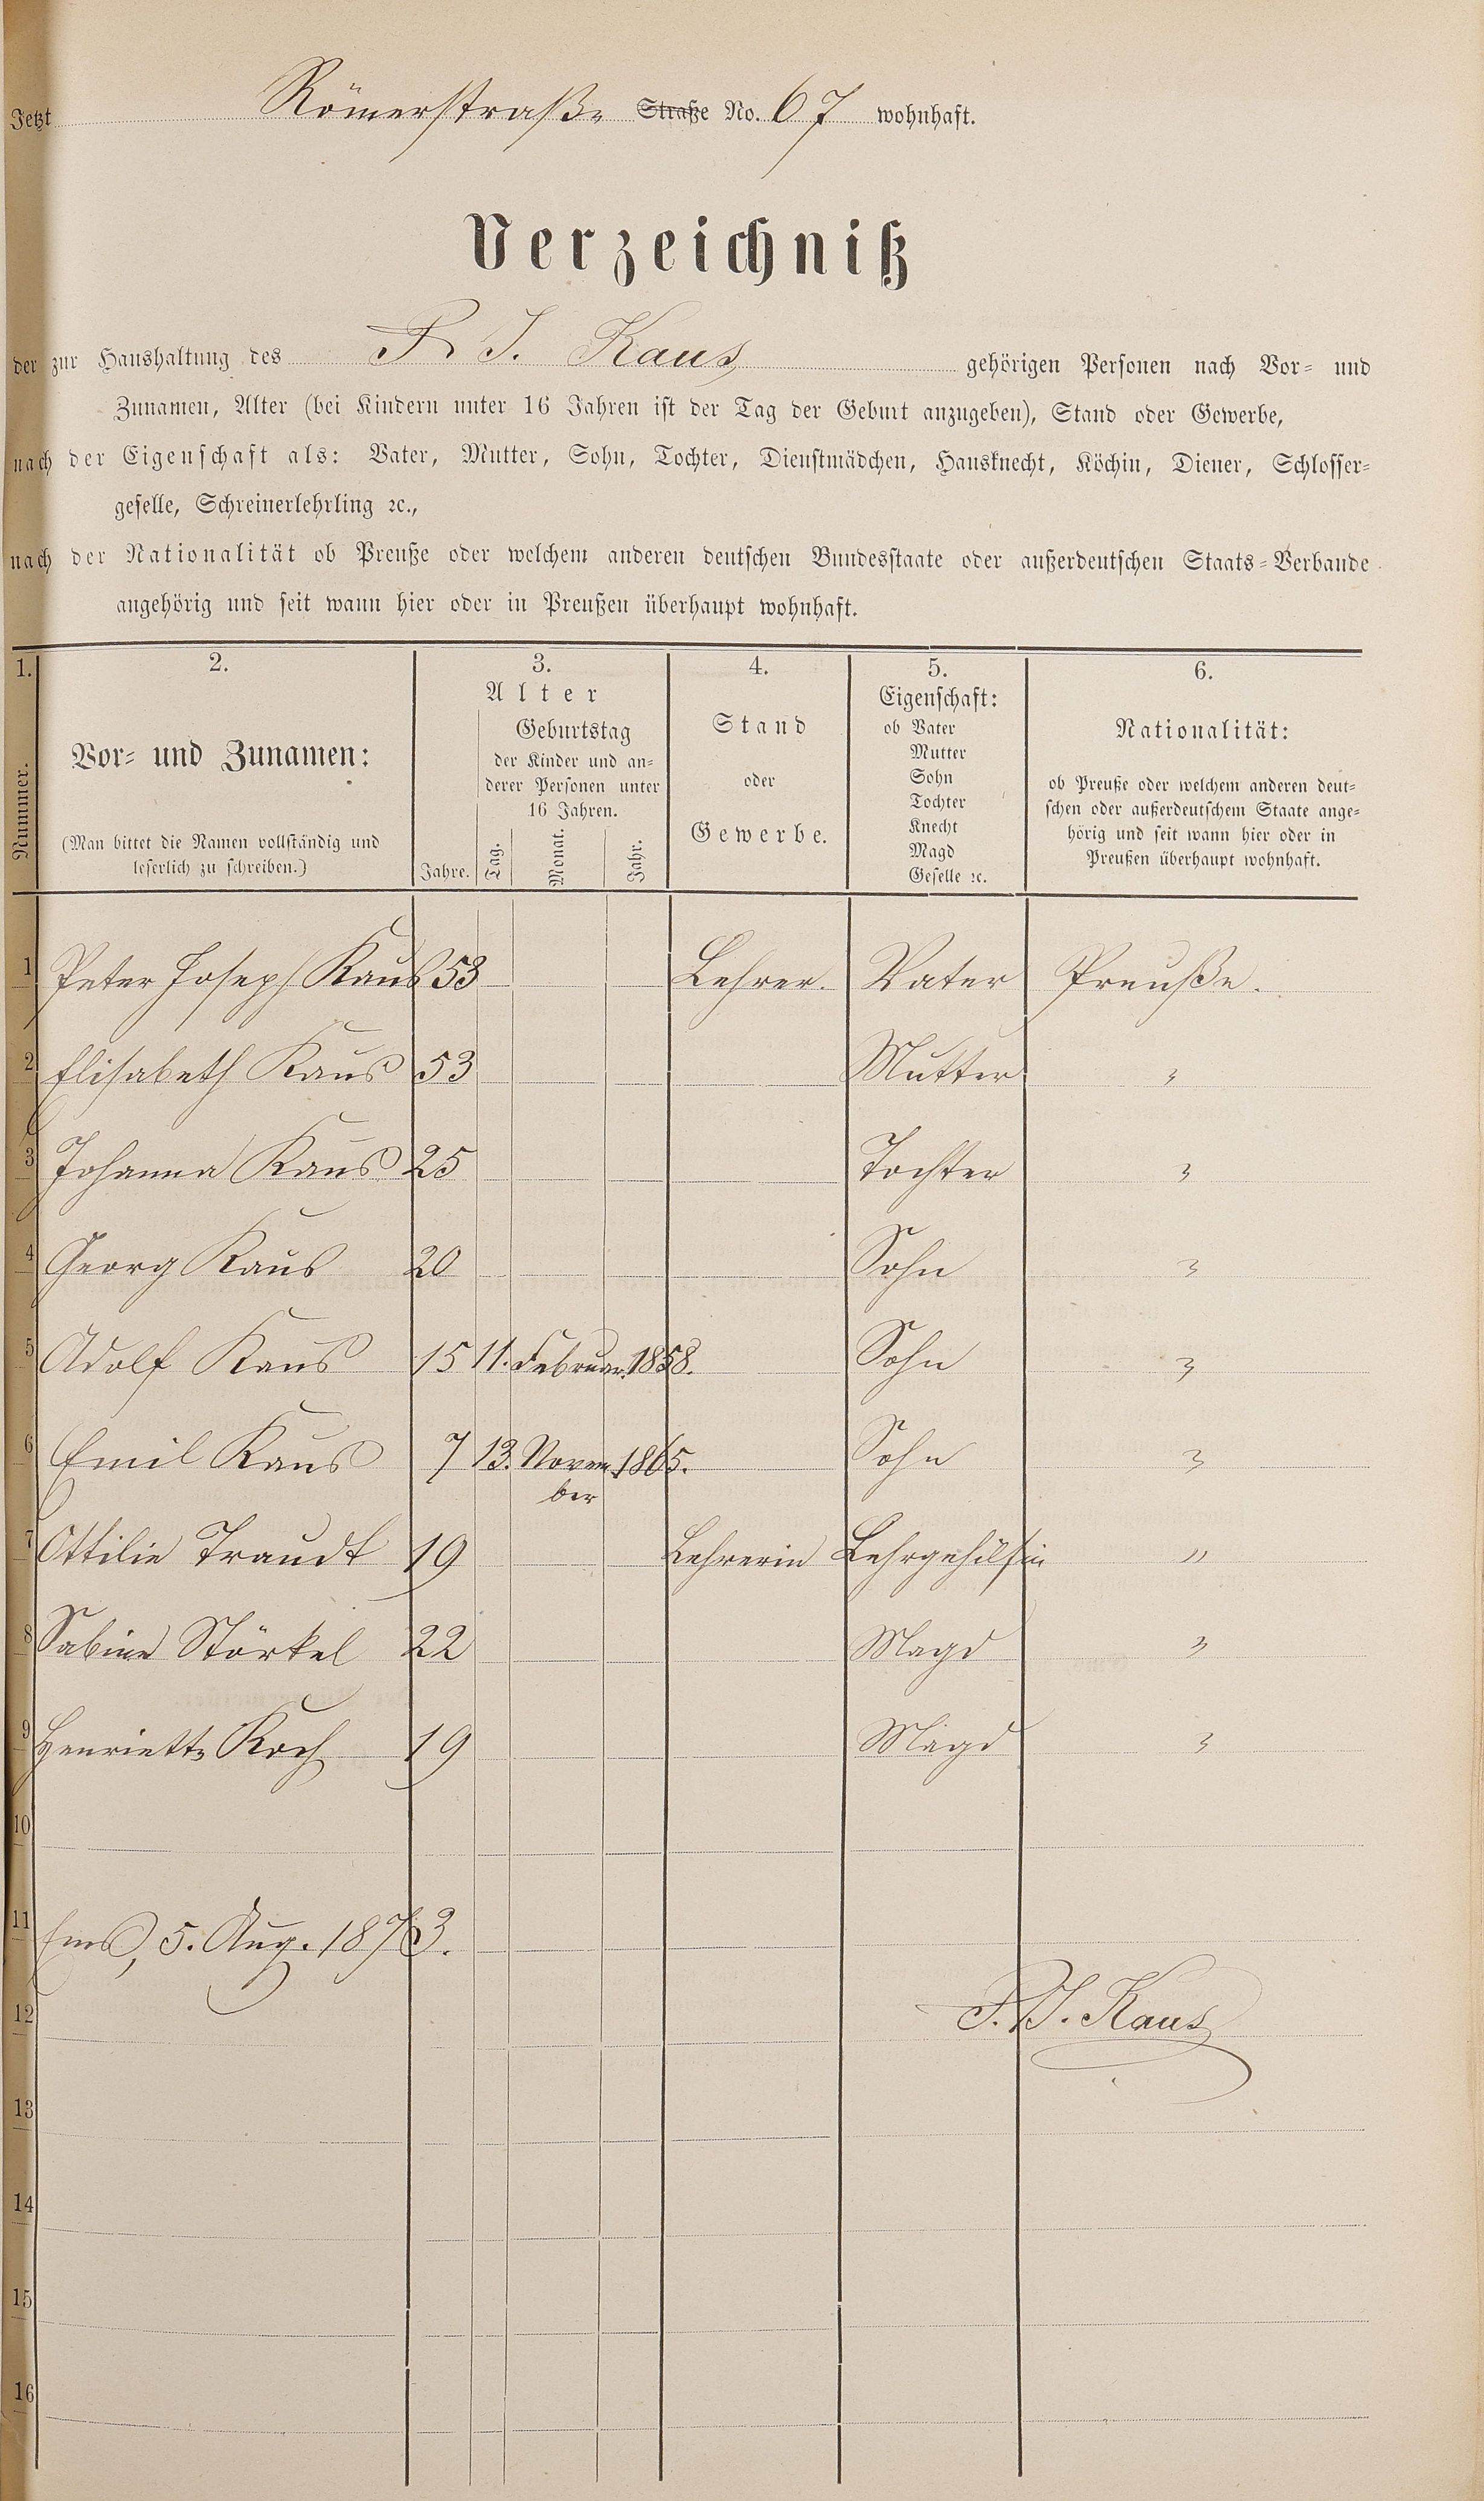 Jetzt Römerstraße Straße No. 67 wohnhaft.
Verzeichniß
der zur Haushaltung des P. J. Kaus gehörigen Personen nach Vor- und
Zunamen, Alter (bei Kindern unter 16 Jahren ist der Tag der Geburt anzugeben), Stand oder Gewerbe,
nach der Eigenschaft als: Vater, Mutter, Sohn, Tochter, Dienstmädchen, Hausknecht, Köchin, Diener, Schlosser-
geselle, Schreinerlehrling ꝛc.,
nach der Nationalität ob Preuße oder welchem anderen deutschen Bundesstaate oder außerdeutschen Staats-Verbande
angehörig und seit wann hier oder in Preußen überhaupt wohnhaft.
1. 2. 3. 4. 5. 6.
Nummer.
Vor- und Zunamen:
(Man bittet die Namen vollständig und
leserlich zu schreiben.)
Alter
Geburtstag
der Kinder und an-
derer Personen unter
16 Jahren.
Jahre. Tag. Monat. Jahr.
Stand
oder
Gewerbe.
Eigenschaft:
ob Vater
Mutter
Sohn
Tochter
Knecht
Magd
Geselle ꝛc.
Nationalität:
ob Preuße oder welchem anderen deut-
schen oder außerdeutschem Staate ange-
hörig und seit wann hier oder in
Preußen überhaupt wohnhaft.
1 Peter Joseph Kaus 53 Lehrer. Vater Preuße.
2 Elisabeth Kaus 53 Mutter "
3 Johanna Kaus 25 Tochter "
4 Georg Kaus 20 Sohn "
5 Adolf Kaus 15 11. Februar. 1858. Sohn "
6 Emil Kaus 7 13. Novem 1865. Sohn "
ber
7 Ottilie Traudt 19 Lehrerin Lehrgehilfin "
8 Sabine Störkel 22 Magd "
9 Henriette Koch 19 Magd "
10
11 Ems, 5. Aug. 1873.
12 P. J. Kaus
13
14
15
16